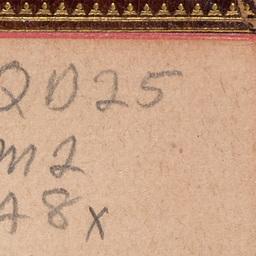 QD25
M2
A8x